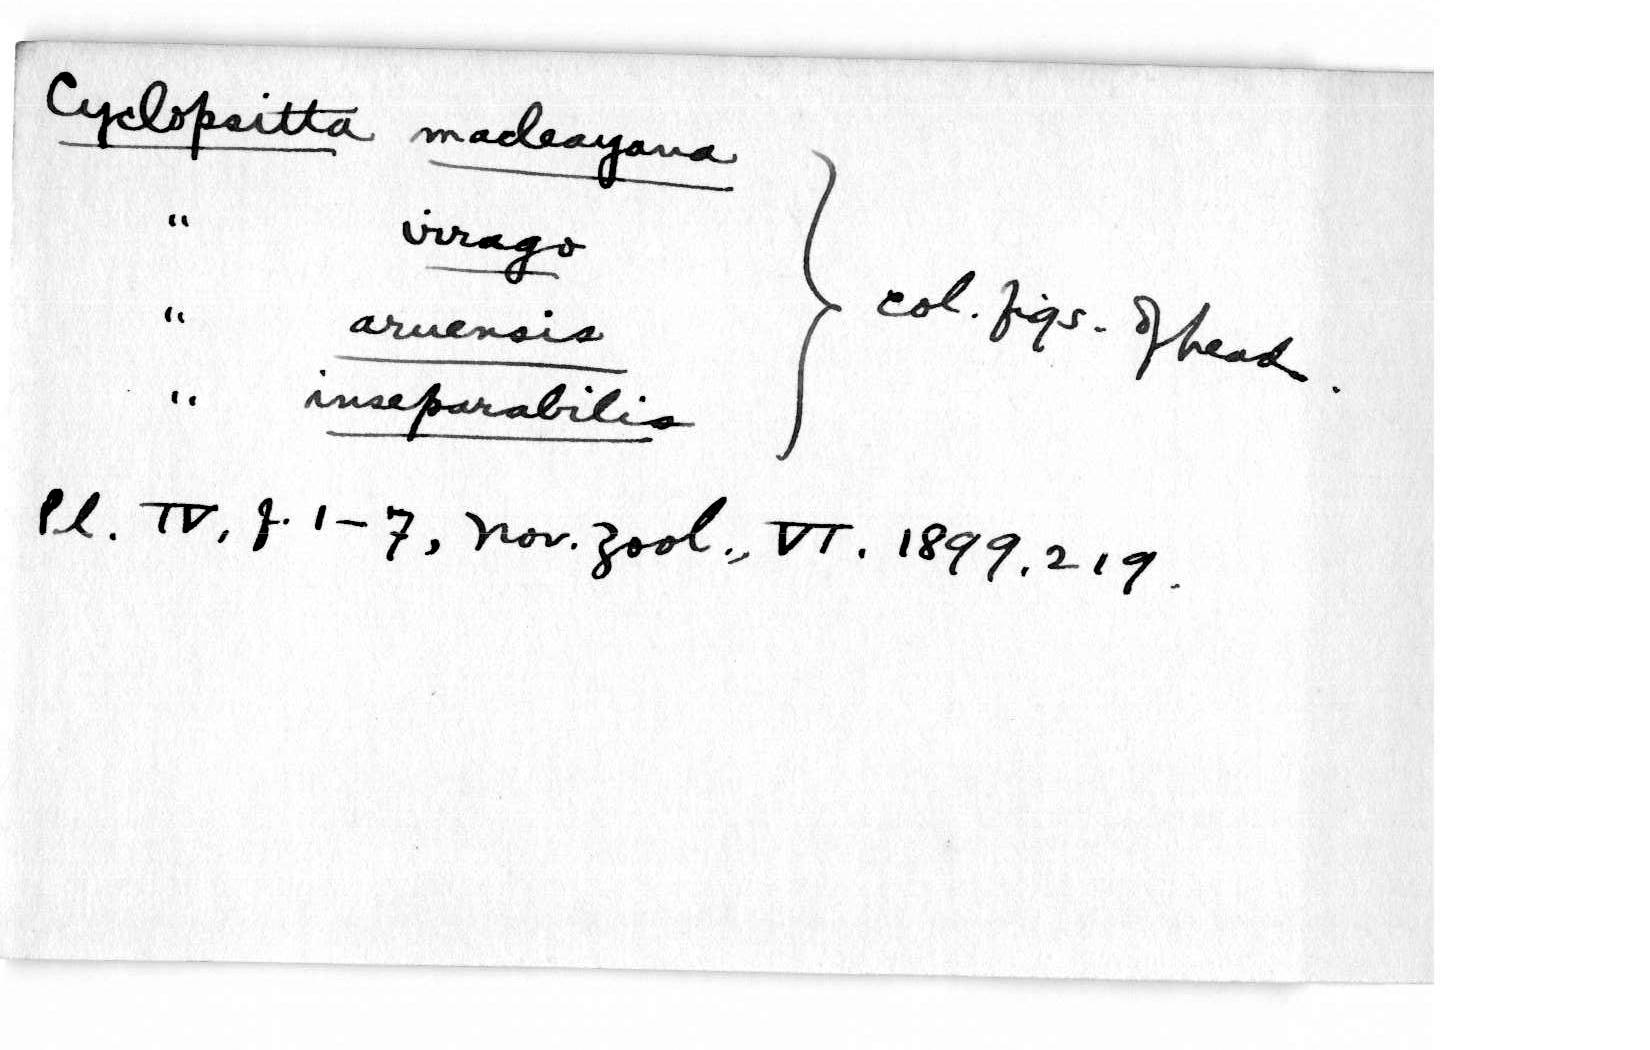 Cyclopsitta macleayana
" virago
" aruensis
" inseparabilis
} col. figs. of head.
Pl. IV, f. 1-7, Nov. Zool., VI. 1899. 219.